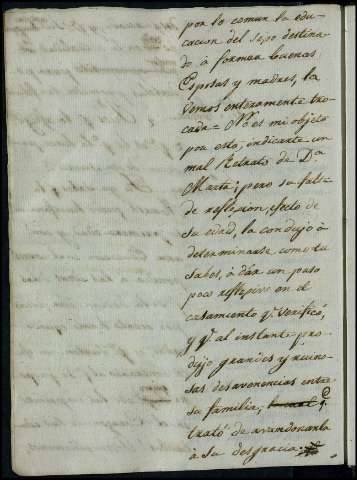 por lo comun la edu-
cacion del sexo destina-
do à formar buenas
Esposas y madres, la
vemos enteramente tro-
cada = No es mi objeto
por esto, indicarte un
mal Retrato de D.a
Marta; pero su fal-
de reflexion, efecto de
su edad, la condujo à
determinarse como tu
sabes, à dár un paso
poco reflexivo en el
casamiento q.e verificó,
y q.e al instante pro-
dujo grandes y ruino-
sas desavenencias entre
su familia, q.e
trató de avandonarla
à su desgracia.